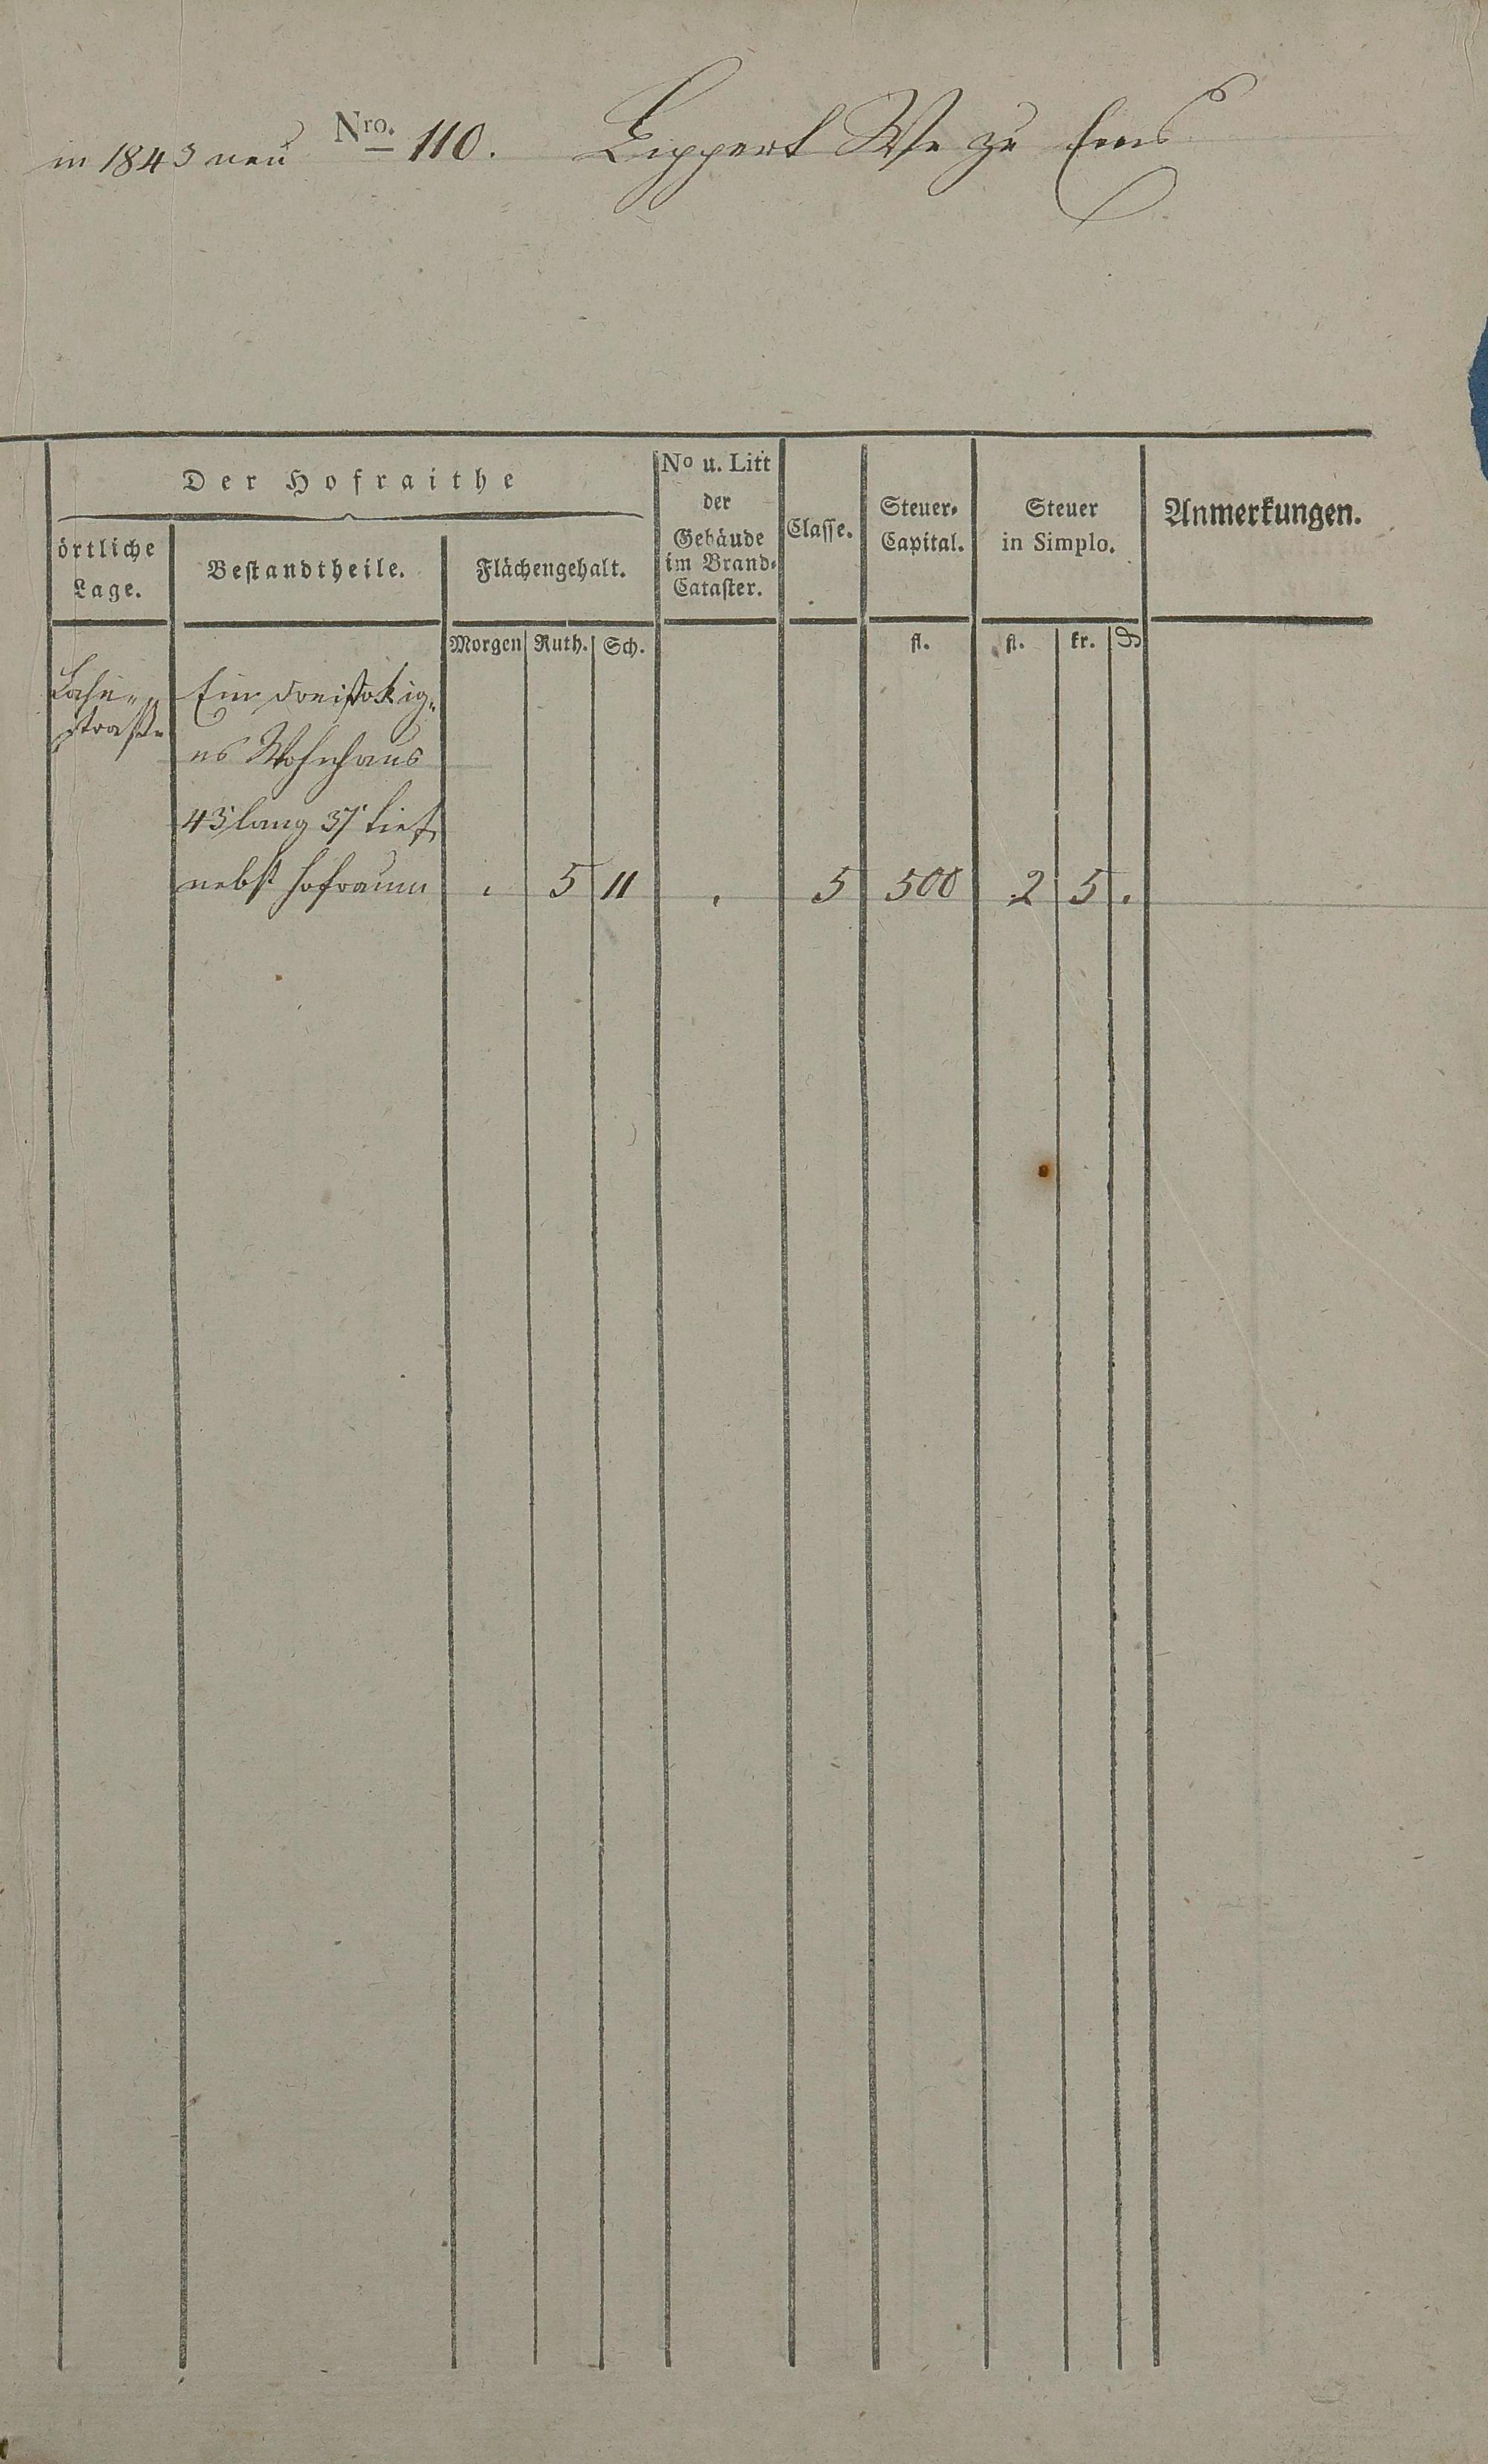 in 1843 neu Nro. 110. Lippert We zu Ems
Der Hofraithe
örtliche
Lage.
Bestandtheile.
Flächengehalt.
No u. Litt
der
Gebäude
im Brand-
Cataster.
Classe.
Steuer-
Capital.
Steuer
in Simplo.
Anmerkungen.
Morgen Ruth. Sch. fl. fl. kr. ₰
Lahn-
straße
Ein dreistokig-
es Wohnhaus
43' lang 37' tief
nebst Hofraum . 5 11 . 5 500 2 5 .